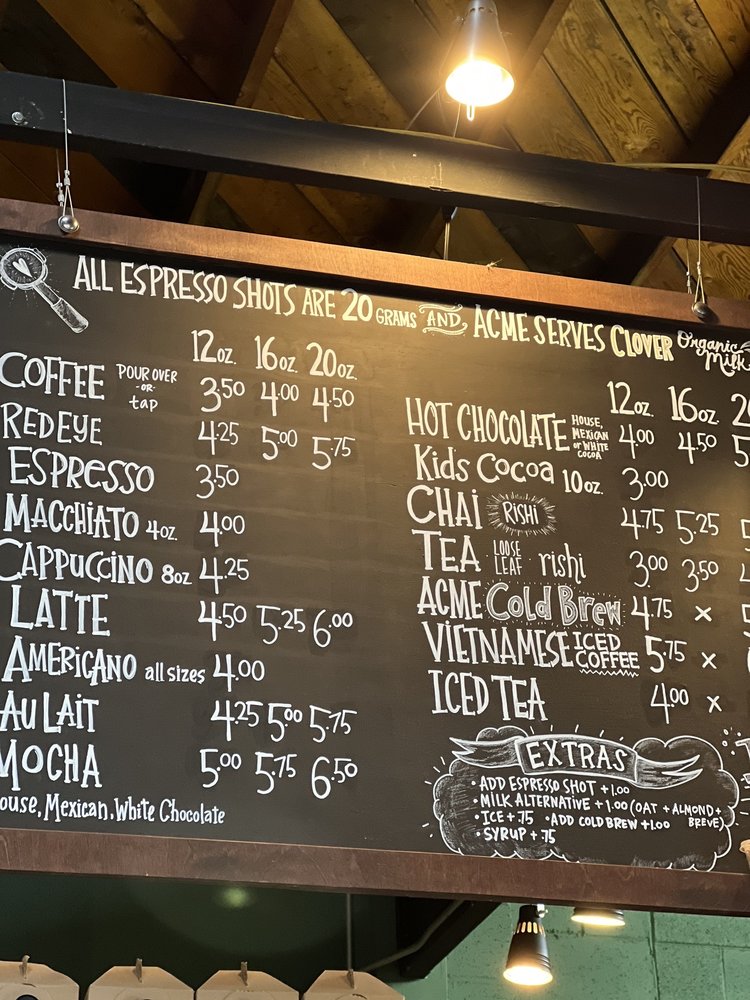 ALL ESPRESSO SHOTS ARE 20 GRAMS AND ACME SERVES CLOVER Organic Milk
12oz. 16oz. 20oz.
COFFEE POUR OVER -OR- tap 3.50 4.00 4.50
RED EYE 4.25 5.00 5.75
ESPRESSO 3.50
MACCHIATO 4oz. 4.00
CAPPUCCINO 8oz 4.25
LATTE 4.50 5.25 6.00
AMERICANO all sizes 4.00
AU LAIT 4.25 5.00 5.75
MOCHA 5.00 5.75 6.50
ouse, Mexican, White Chocolate
12oz. 16oz. 2
HOT CHOCOLATE HOUSE, MEXICAN or WHITE COCOA 4.00 4.50 5
Kids Cocoa 10oz. 3.00
CHAI RISHI 4.75 5.25
TEA LOOSE LEAF rishi 3.00 3.50
ACME Cold Brew 4.75 x
VIETNAMESE ICED COFFEE 5.75 x
ICED TEA 4.00 x
EXTRAS
• ADD ESPRESSO SHOT +1.00
• MILK ALTERNATIVE +1.00 (OAT + ALMOND + BREVE)
• ICE +.75 • ADD COLD BREW +1.00
• SYRUP +.75